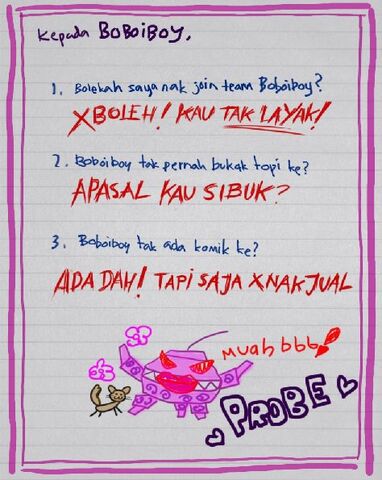 Kepada BOBOiBOY,
1. Bolekah saya nak join team Boboiboy?
XBOLEH! KAU TAK LAYAK!
2. Boboiboy tak pernah bukak topi ke?
APASAL KAU SIBUK?
3. Boboiboy tak ada komik ke?
ADA DAH! TAPI SAJA XNAK JUAL
muah bbb
PROBE